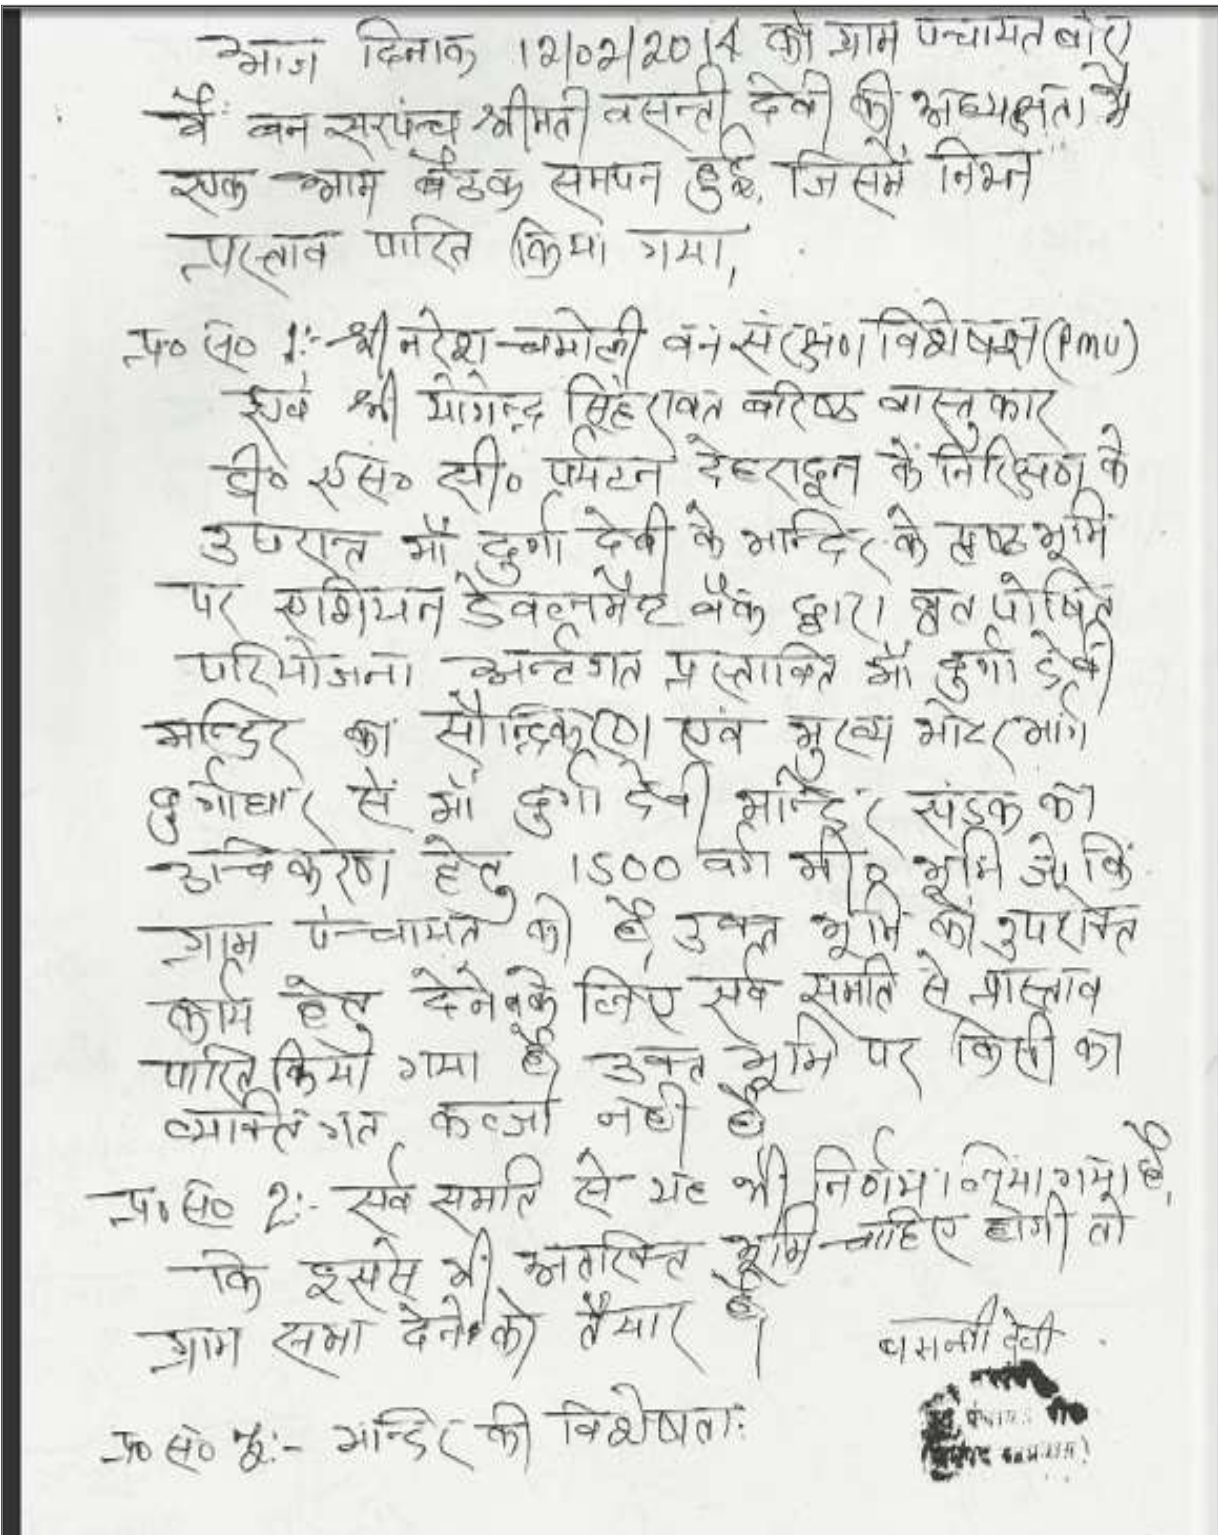 आज दिनाक 12/02/2014 को ग्राम पंन्चायत बोरा
में बन सरपंन्च श्रीमती वसन्ती देवी की अध्यक्षता में
एक आम बैठक समपन हुई, जिसमें निम्न
प्रस्ताव पारित किया गया,
प्र० स० 1:- श्री नरेश चमोली वन संरक्षण विशेषज्ञ (Pmu)
एवं श्री योगेन्द्र सिंह रावत वरिष्ठ वास्तुकार
डी० एस० सी० पर्यटन देहरादून के निरिक्षण के
उपरान्त माँ दुर्गा देवी के मन्दिर के पृष्ठ भूमि
पर एशियन डेवल्पमैन्ट बैंक द्वारा वृत पोषित
परियोजना अर्न्तगत प्रस्तावित माँ दुर्गा देवी
मन्दिर का सौन्द्रिकरण एवं मुख्य मोटर मार्ग
दुर्गाधार से माँ दुर्गा देवी मन्दिर सडक का
हेतु 1500 वर्ग मी० भूमि जो कि
ग्राम पंन्चायत की है, उक्त भूमि को उपरोक्त
कार्य हेतु देने के लिए सर्व समति से प्रास्ताव
पारित किया गया है उक्त भूमि पर किसी का
व्यक्तिगत कब्जा नही है
प्र० स० 2:- सर्व समति से यह भी निर्णय लिया गया है,
कि इससे भी अतरिक्त भूमि चाहिए होगी तो
ग्राम सभा देने को तैयार है।
बसन्ती देवी
प्र० स० 3:- मन्दिर की विशेषता: